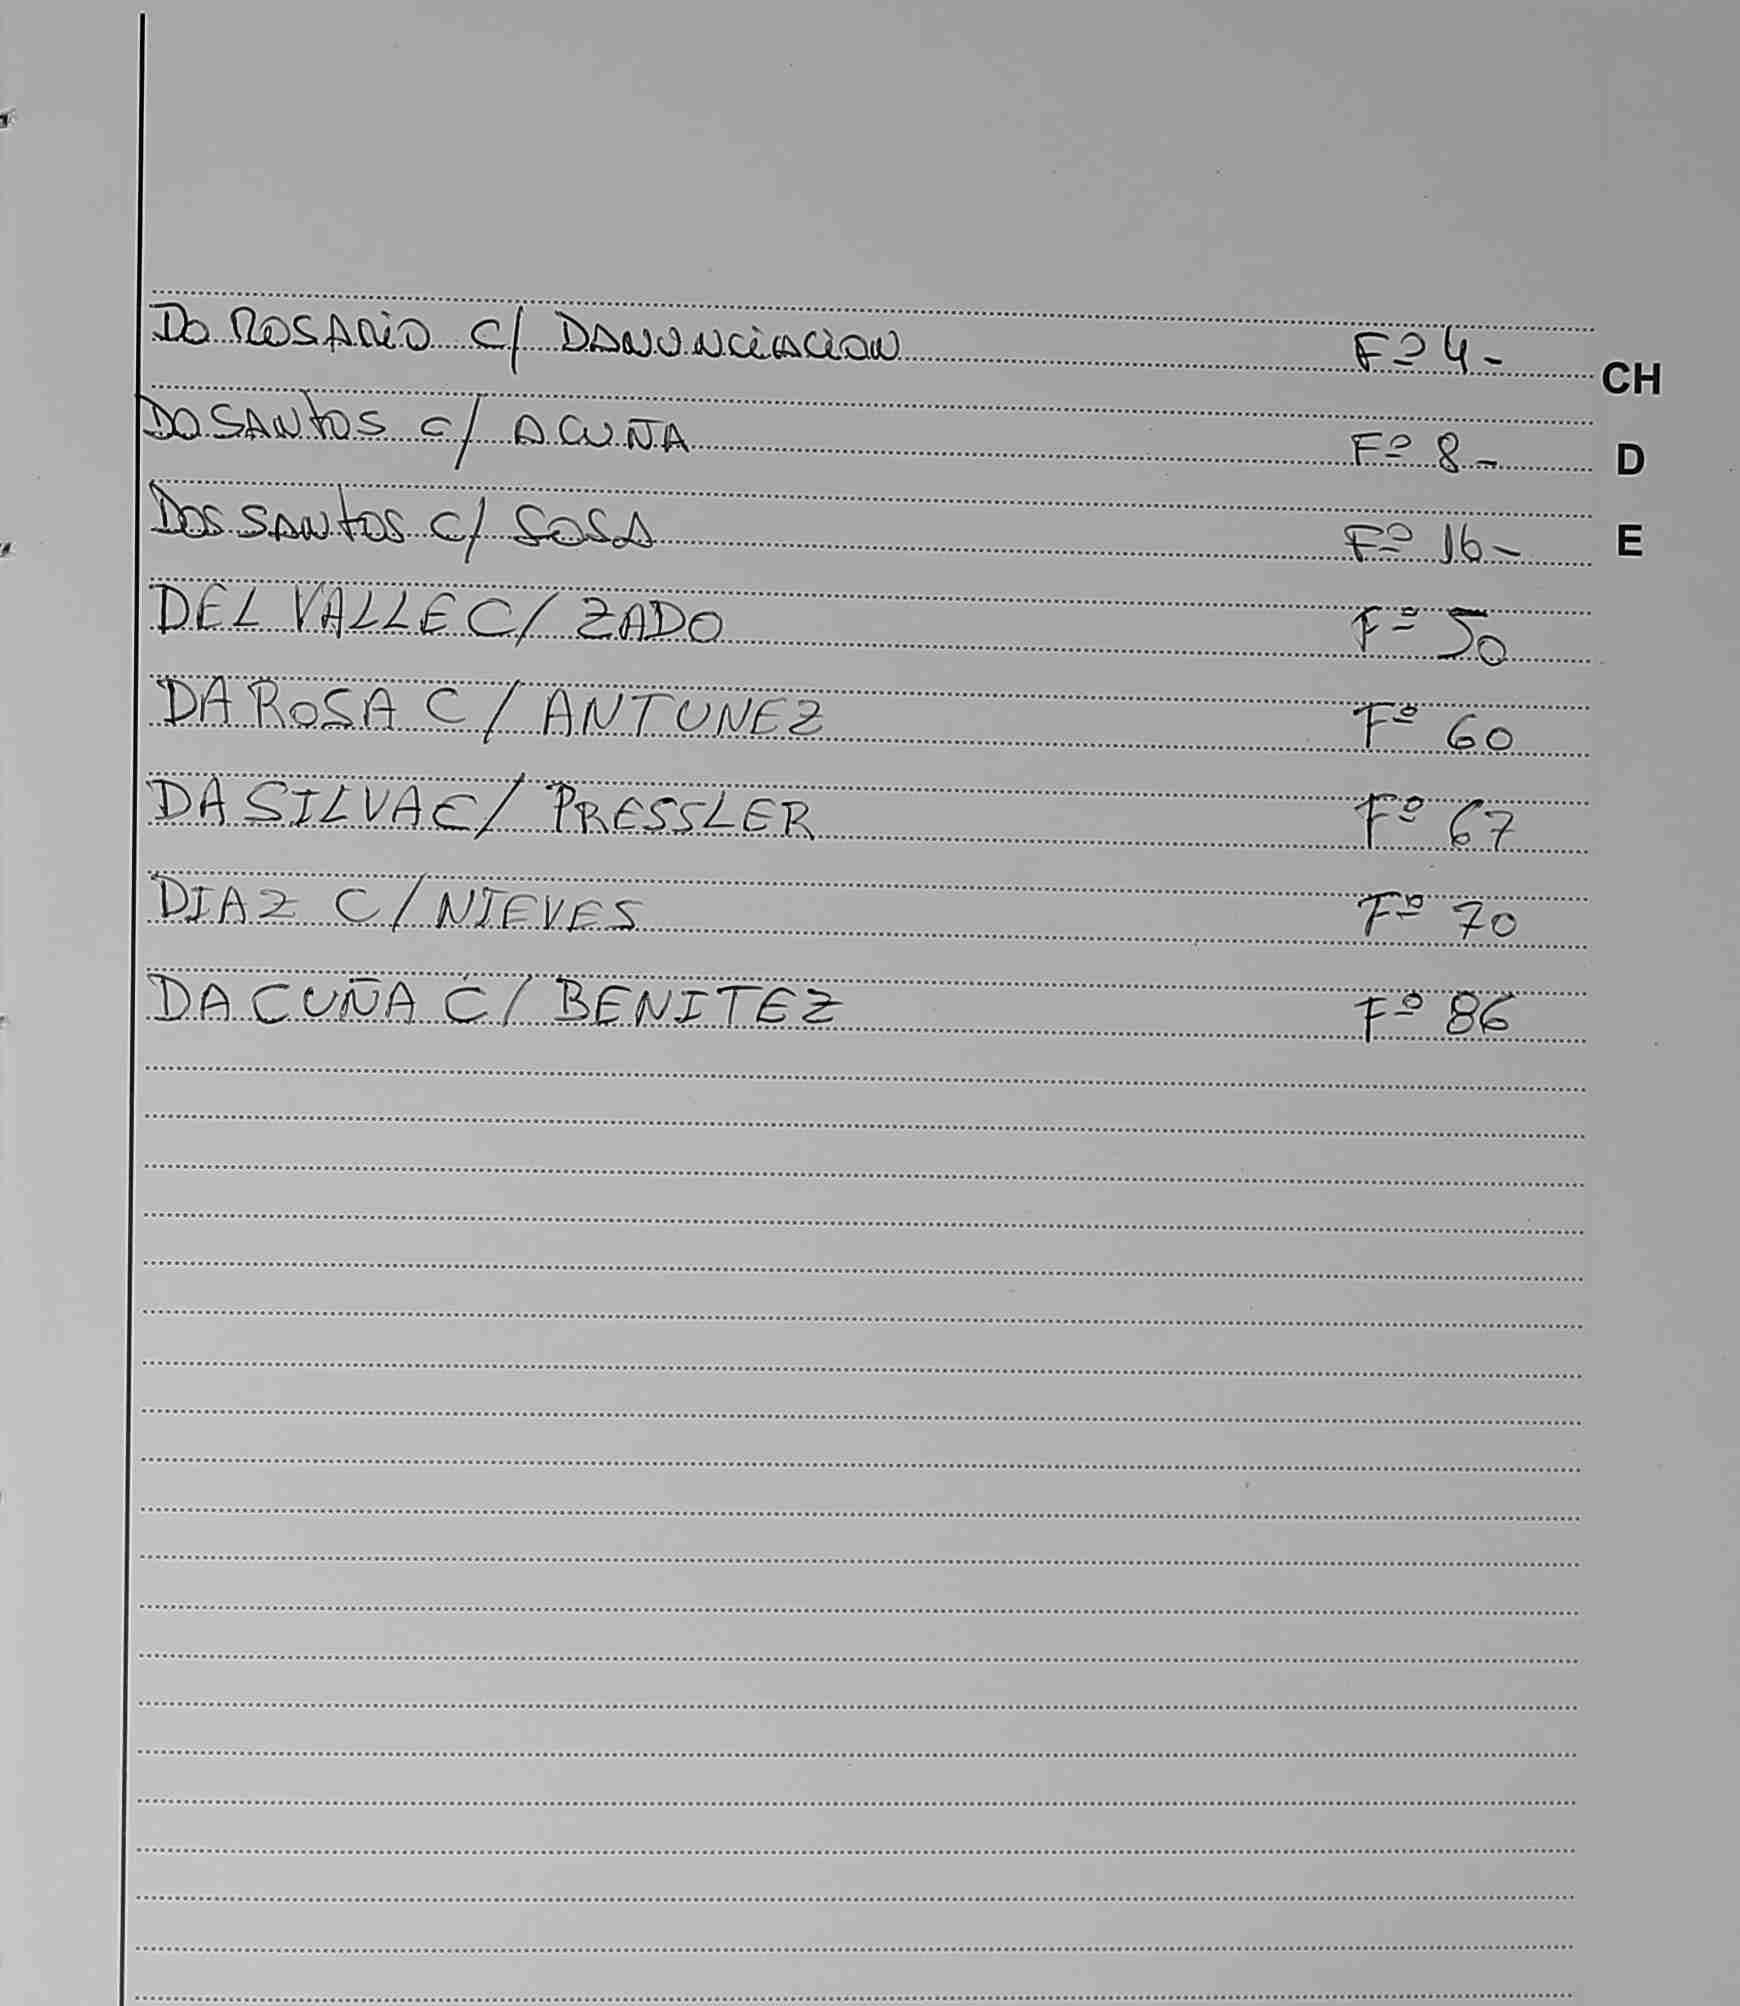 Do ROSARIO C/ DANUNCIACION Fº 4-
CH
DOSANTOS C/ ACUÑA Fº 8-
D
DOS SANTOS C/ SOSA Fº 16-
E
DEL VALLE C/ ZADO Fº 50
DA ROSA C/ ANTUNEZ Fº 60
DA SILVA C/ PRESSLER Fº 67
DIAZ C/ NIEVES Fº 70
DA CUÑA C/ BENITEZ Fº 86